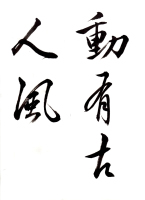 動有古
人風